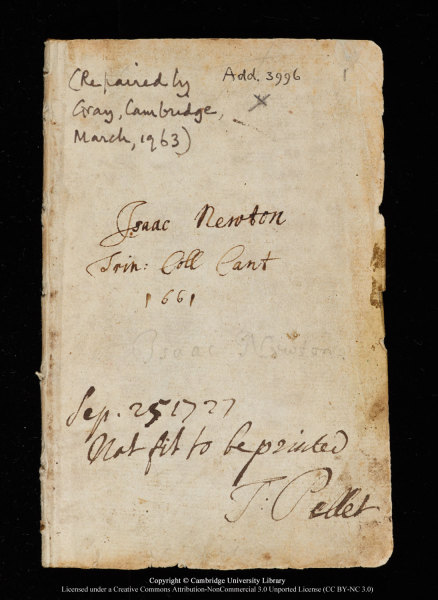 (Repaired by
Gray, Cambridge,
March, 1963)
Add. 3996
1
Isaac Newton
Trin: Coll Cant
1661
Isaac Newton
Sep. 25 1727
Not fit to be printed
T. Pellet
Copyright © Cambridge University Library
Licensed under a Creative Commons Attribution-NonCommercial 3.0 Unported License (CC BY-NC 3.0)